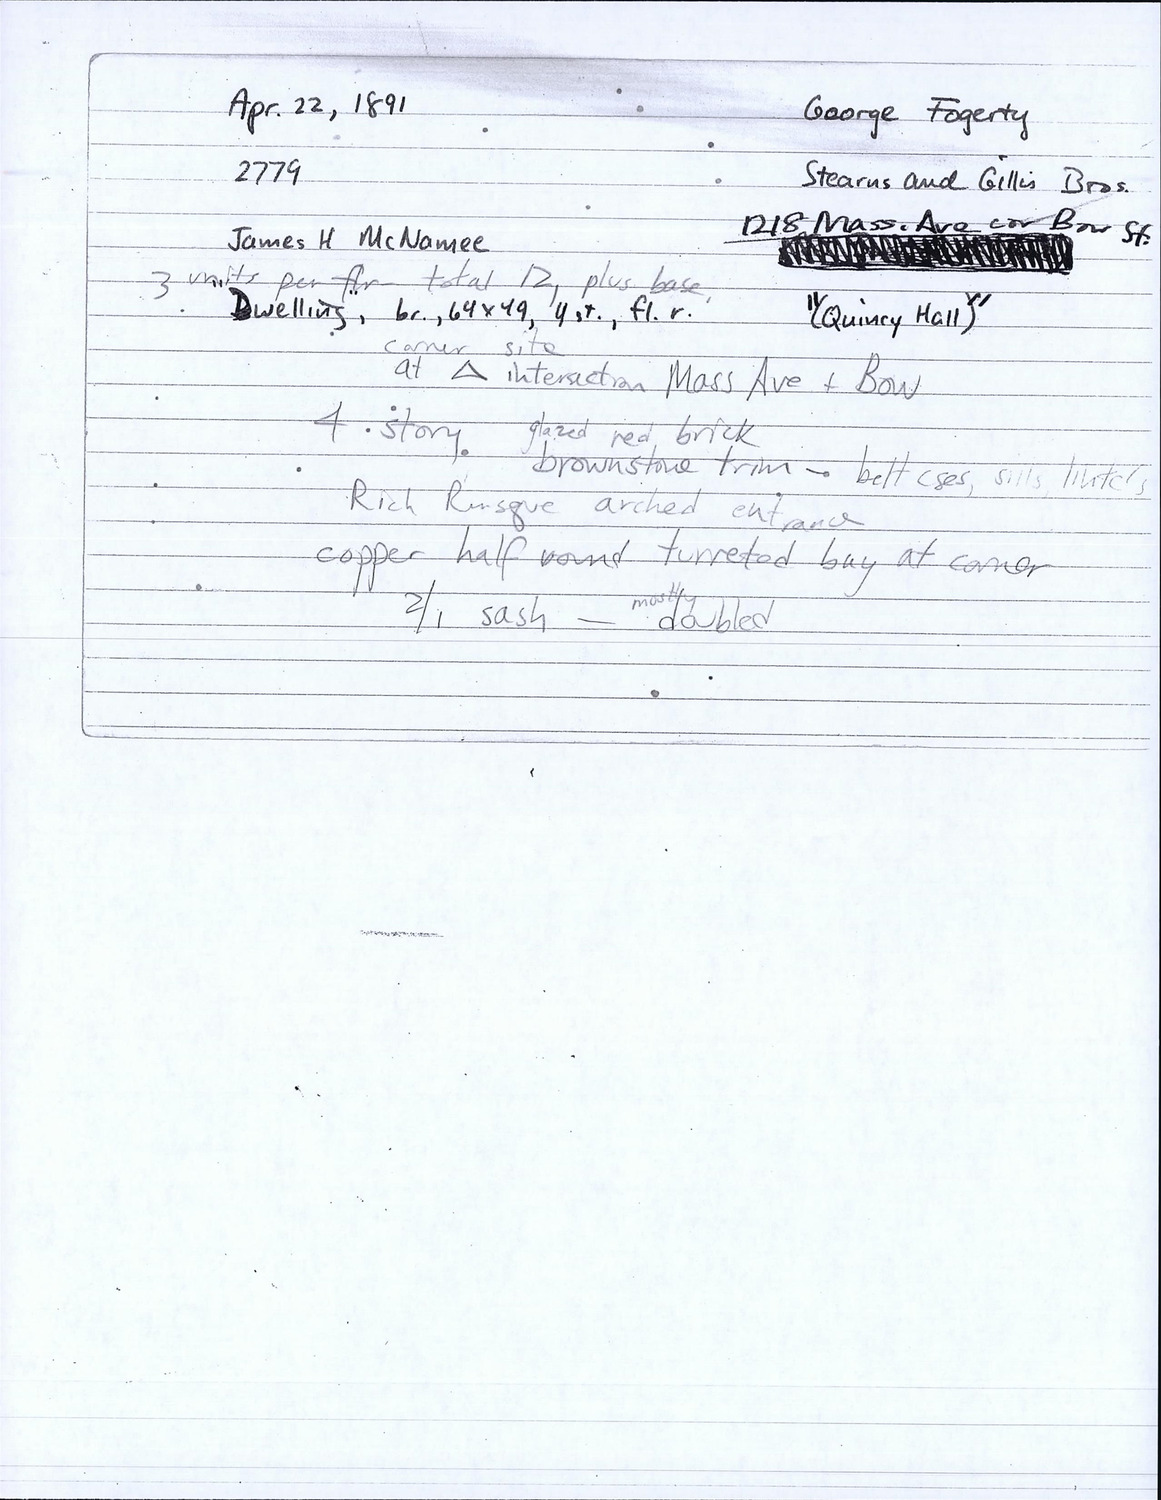 Apr. 22, 1891 George Fogerty
2779 Stearns and Gillis Bros.
1218 Mass. Ave cor Bow St.
James H McNamee
3 units per flr - total 12, plus base.
Dwelling, br., 64x49, 4 st., fl. r. "(Quincy Hall)"
corner site
at △ interaction Mass Ave + Bow
4 story glazed red brick
brownstone trim - belt cses, sills, lintels
Rich Rmsque arched entrance
copper half round turreted bay at corner
2/1 sash — mostly doubled